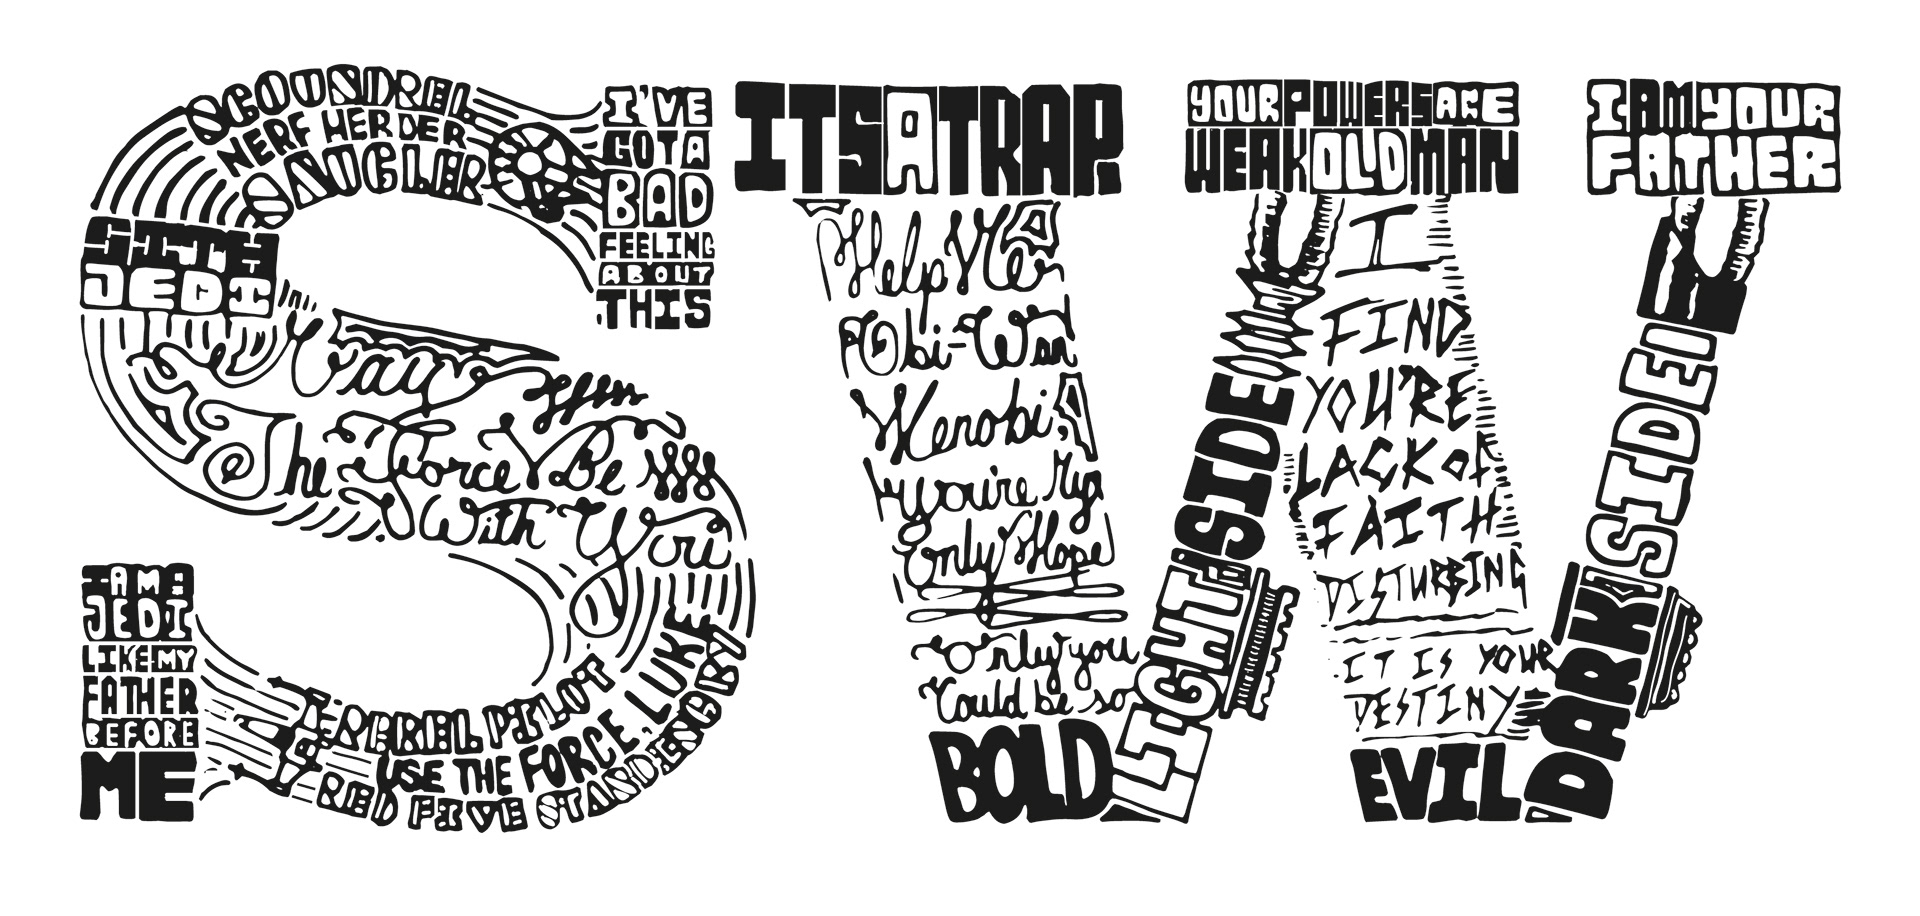 SCOUNDREL
NERF HERDER
I'VE
GOT A
BAD
FEELING
ABOUT
THIS
SITH
JEDI
May
The Force Be
With You
I AM A
JEDI
LIKE MY
FATHER
BEFORE
ME
REBEL PILOT
USE THE FORCE, LUKE
RED FIVE STANDING BY
ITS A TRAP
Help Me
Obi-Wan
Kenobi,
you're My
Only Hope
Only you
Could be so
BOLD
YOUR POWERS ARE
WEAK OLD MAN
LIGHT SIDE
I
FIND
YOU'RE
LACK OF
FAITH
DISTURBING
IT IS YOUR
DESTINY
EVIL
I AM YOUR
FATHER
DARK SIDE